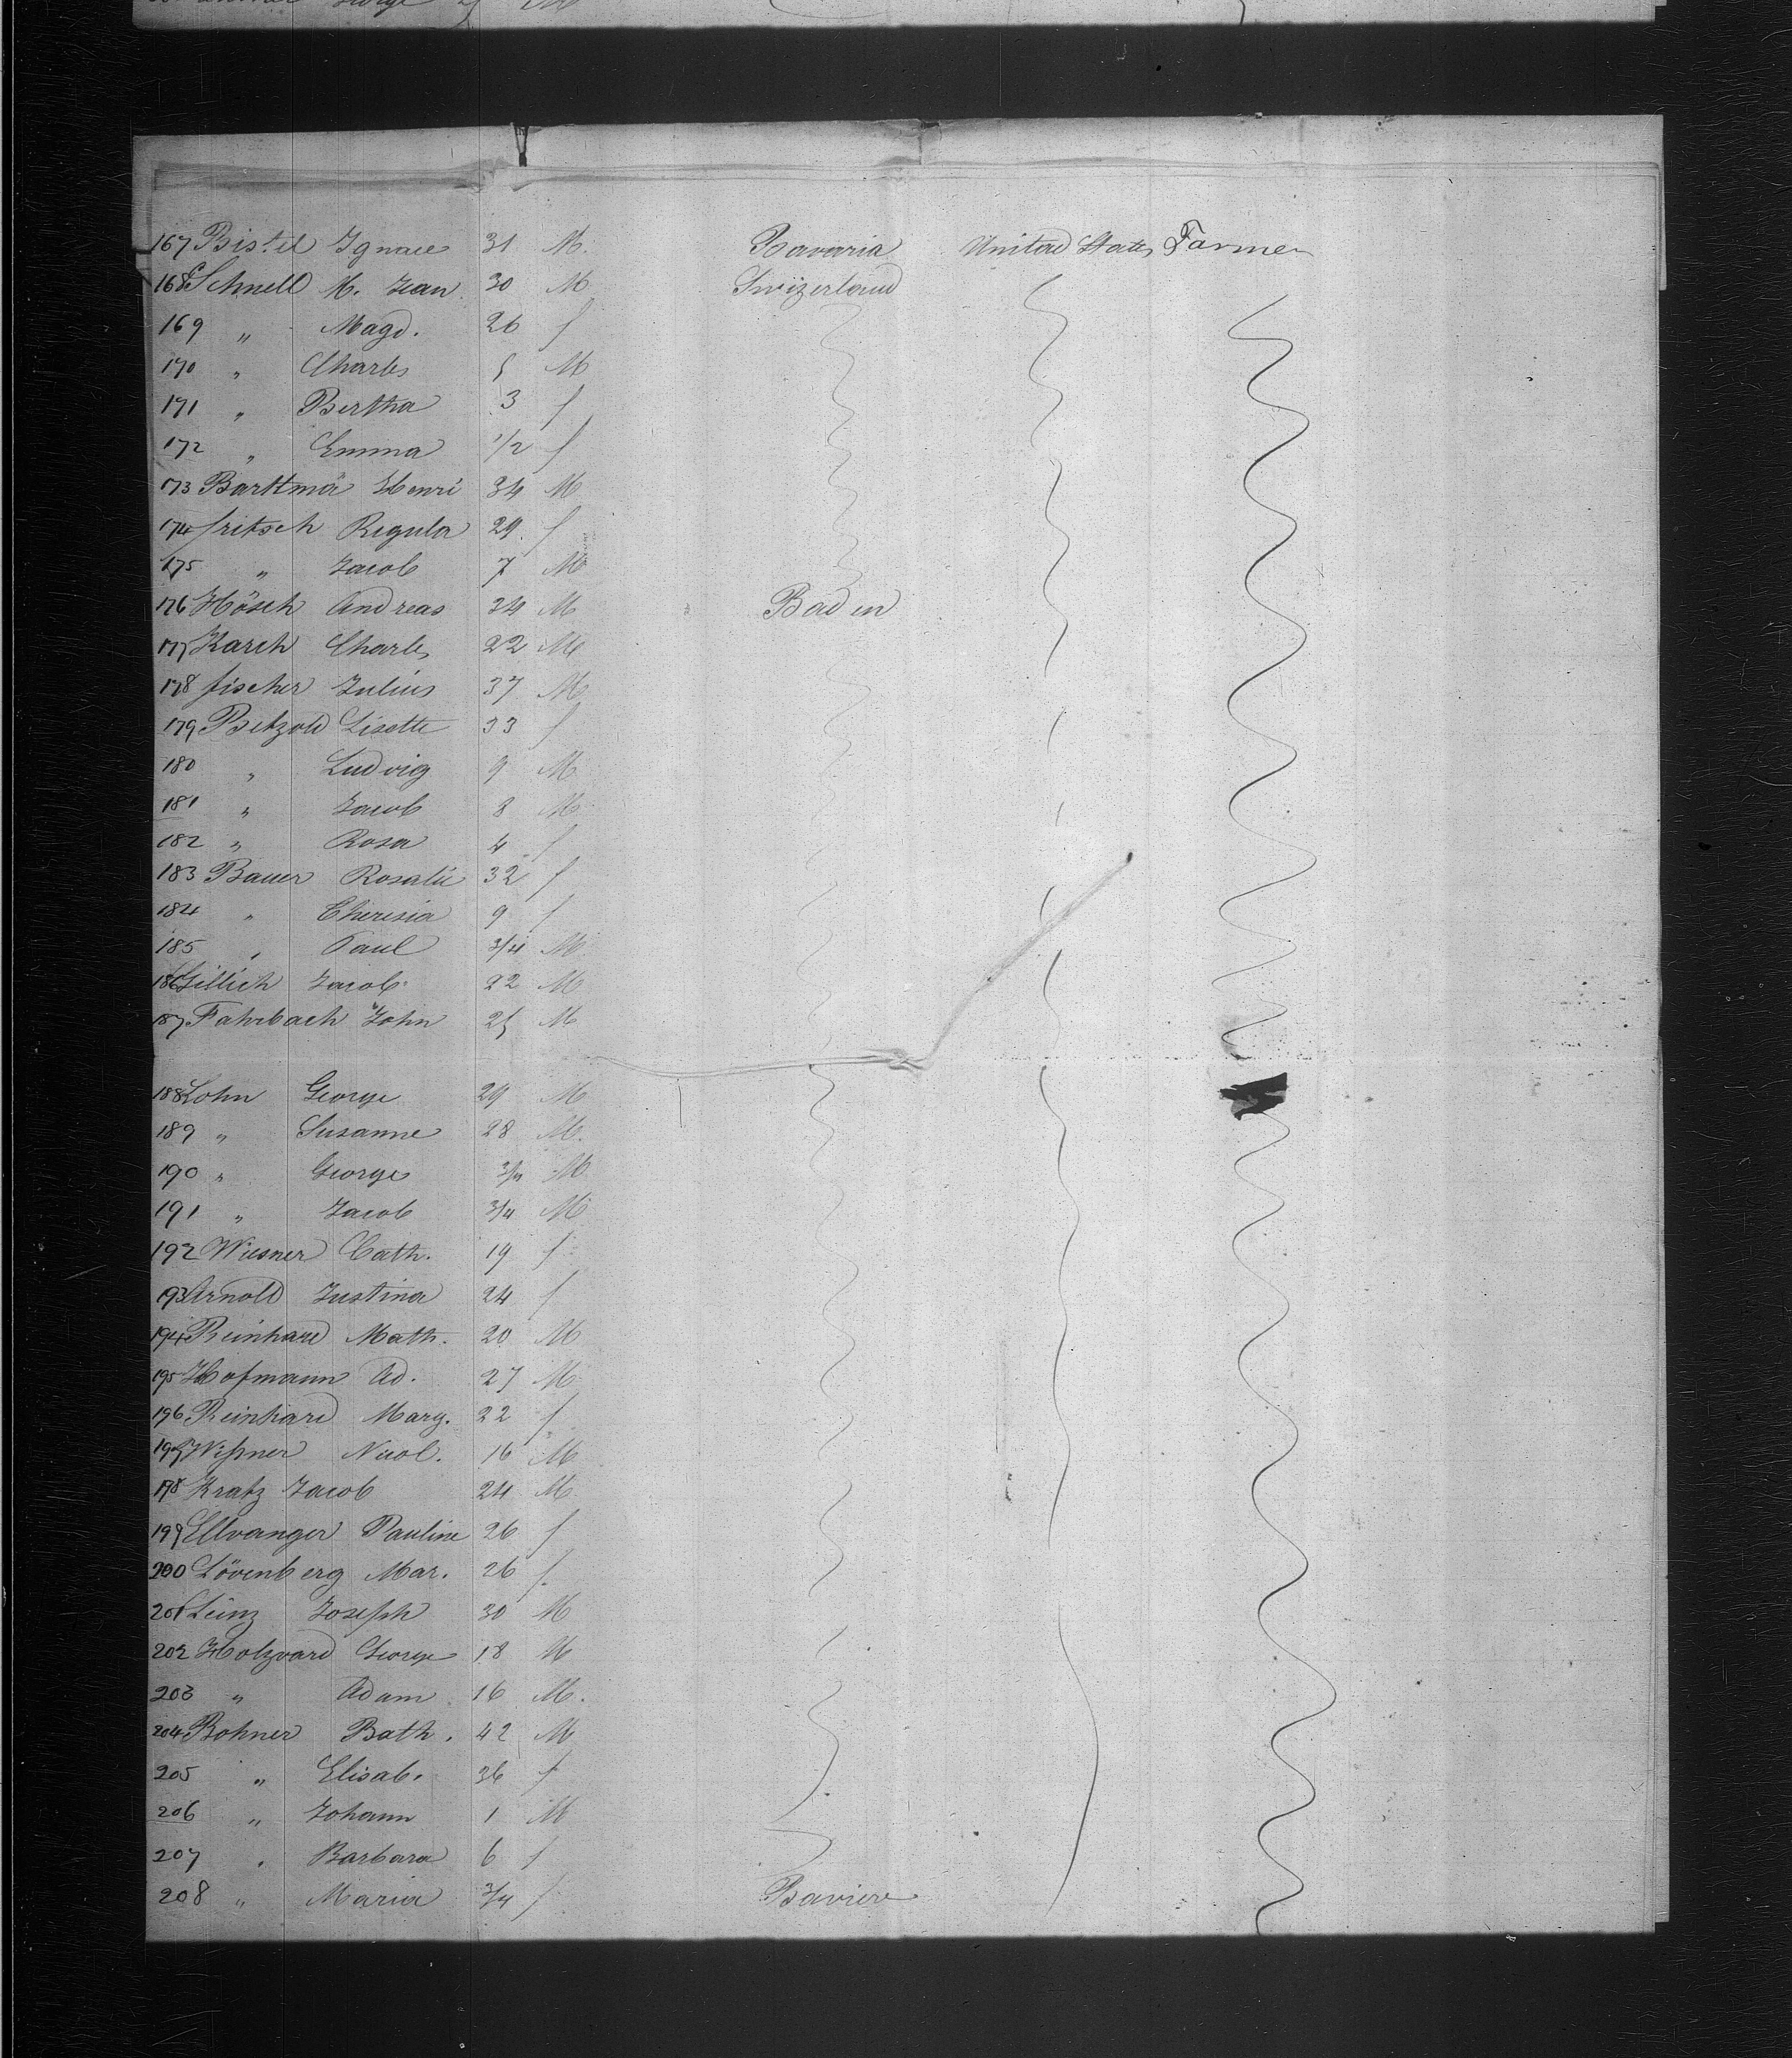 George 25 M
167 Bistel Ignace 31 M. Bavaria United States Farmer
168 Schnell M. Jean 30 M Swizerland
169 " Magd. 26 f
170 " Charles 5 M
171 " Bertha 3 f
172 " Emma 1/2 f
173 Barttmä Henri 34 M
174 fritsch Regula 29. f
175 " Jacob 7 M
176 Hösch Andreas 34 M Baden
177 Karch Charles 22 M
178 fischer Julius 37 M
179 Betzold Lisette 33 f
180 " Ludvig 9 M
181 " Jacob 8 M
182 " Rosa 4 f
183 Bauer Rosalie 32 f
184 " Theresia 9 f
185 " Paul 3/4 M
186 Gillich Jacob 22 M
187 Fahrbach John 25 M
188 Lohn George 29 M
189 " Susanne 28 M.
190 " George 3/4 M
191 " Jacob 3/4 M
192 Wiesner Cath. 19 f
193 Arnold Justina 24 f
194 Reinhard Math. 20 M
195 Hofmann Ad. 27 M
196 Reinhard Marg. 22 f
197 Wißner Nicol. 16 M
198 Kratz Jacob 24 M
199 Ellvanger Pauline 26 f
200 Lövenberg Mar. 26 f.
201 Leinz Joseph 30 M
202 Holzvard George 18 M
203 " Adam 16 M.
204 Bohner Bath. 42 M
205 " Elisab. 36 f
206 " Johann 1 M
207 " Barbara 6 f
208 " Maria 3/4 f Baviere